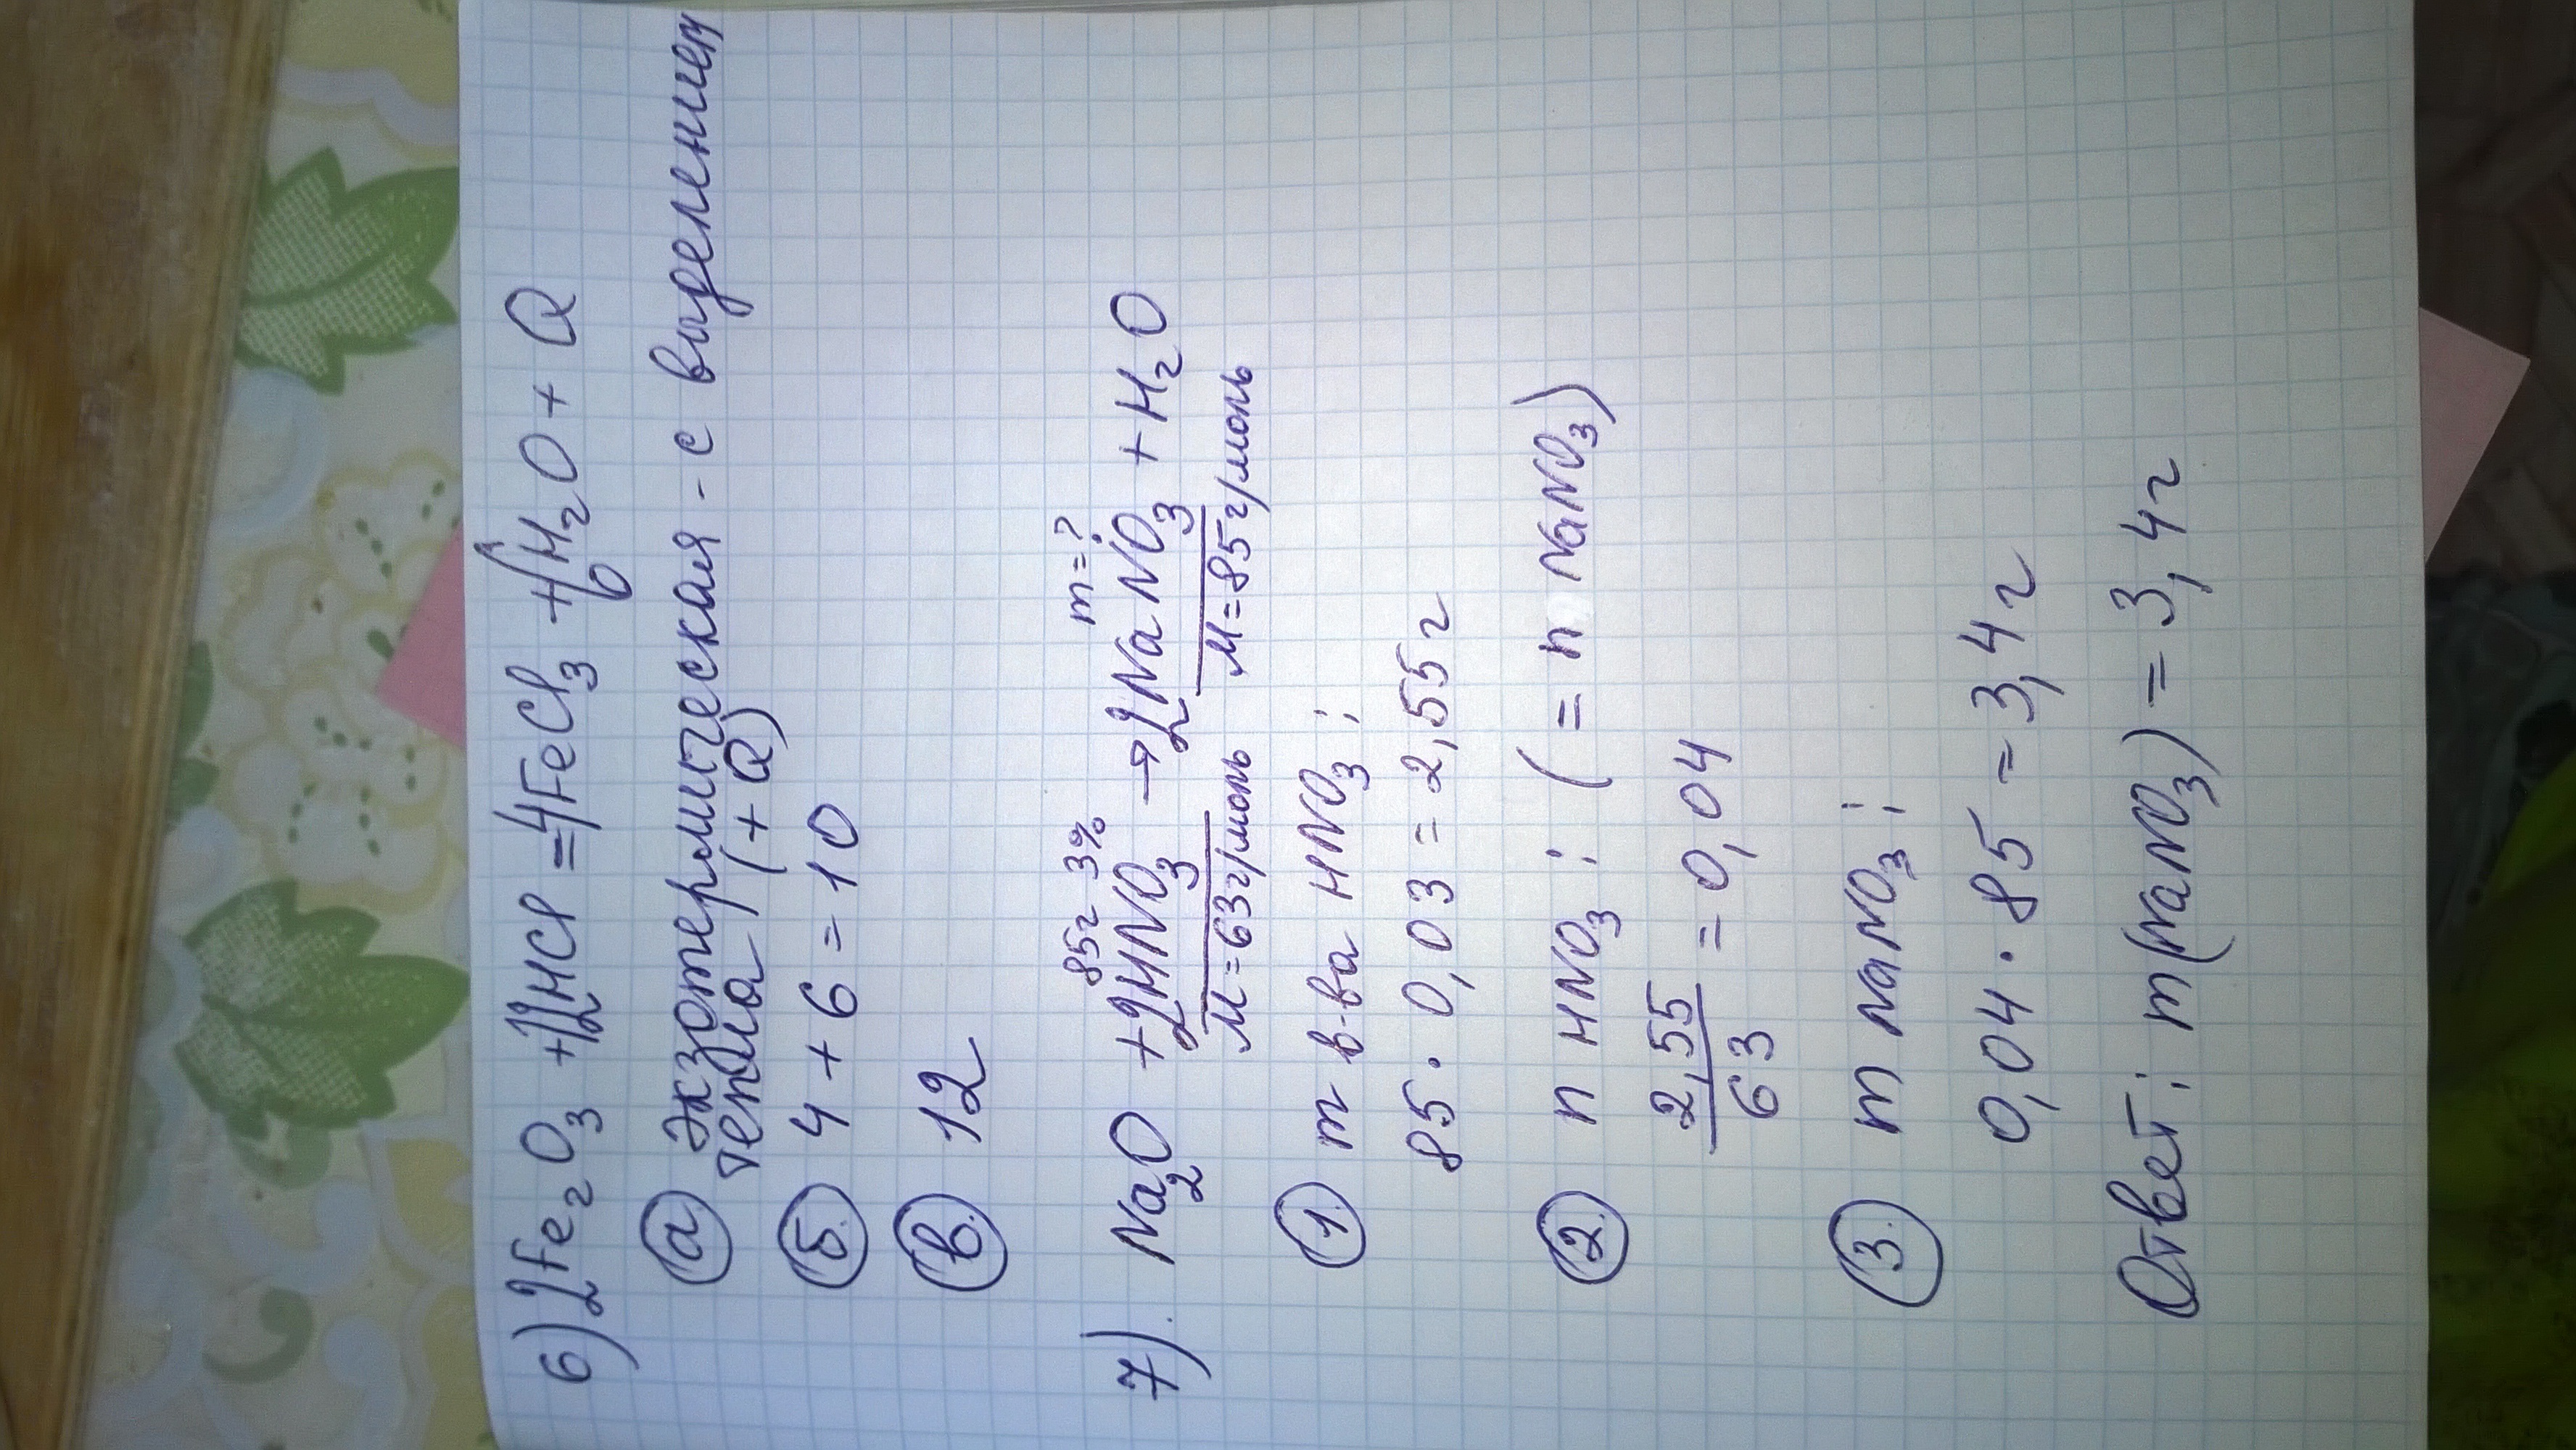 6) 2Fe2O3 + 12HCl = 4FeCl3 + 6H2O + Q
а экзотермическая - с выделением
тепла (+Q)
б. 4 + 6 = 10
в. 12
85г 3% m=?
7). Na2O + 2HNO3 → 2NaNO3 + H2O
M=63г/моль M=85г/моль
1. m в-ва HNO3:
85 · 0,03 = 2,55г
2. n HNO3: (= n NaNO3)
2,55
63
= 0,04
3. m NaNO3:
0,04 · 85 = 3,4г
Ответ: m(NaNO3) = 3,4г